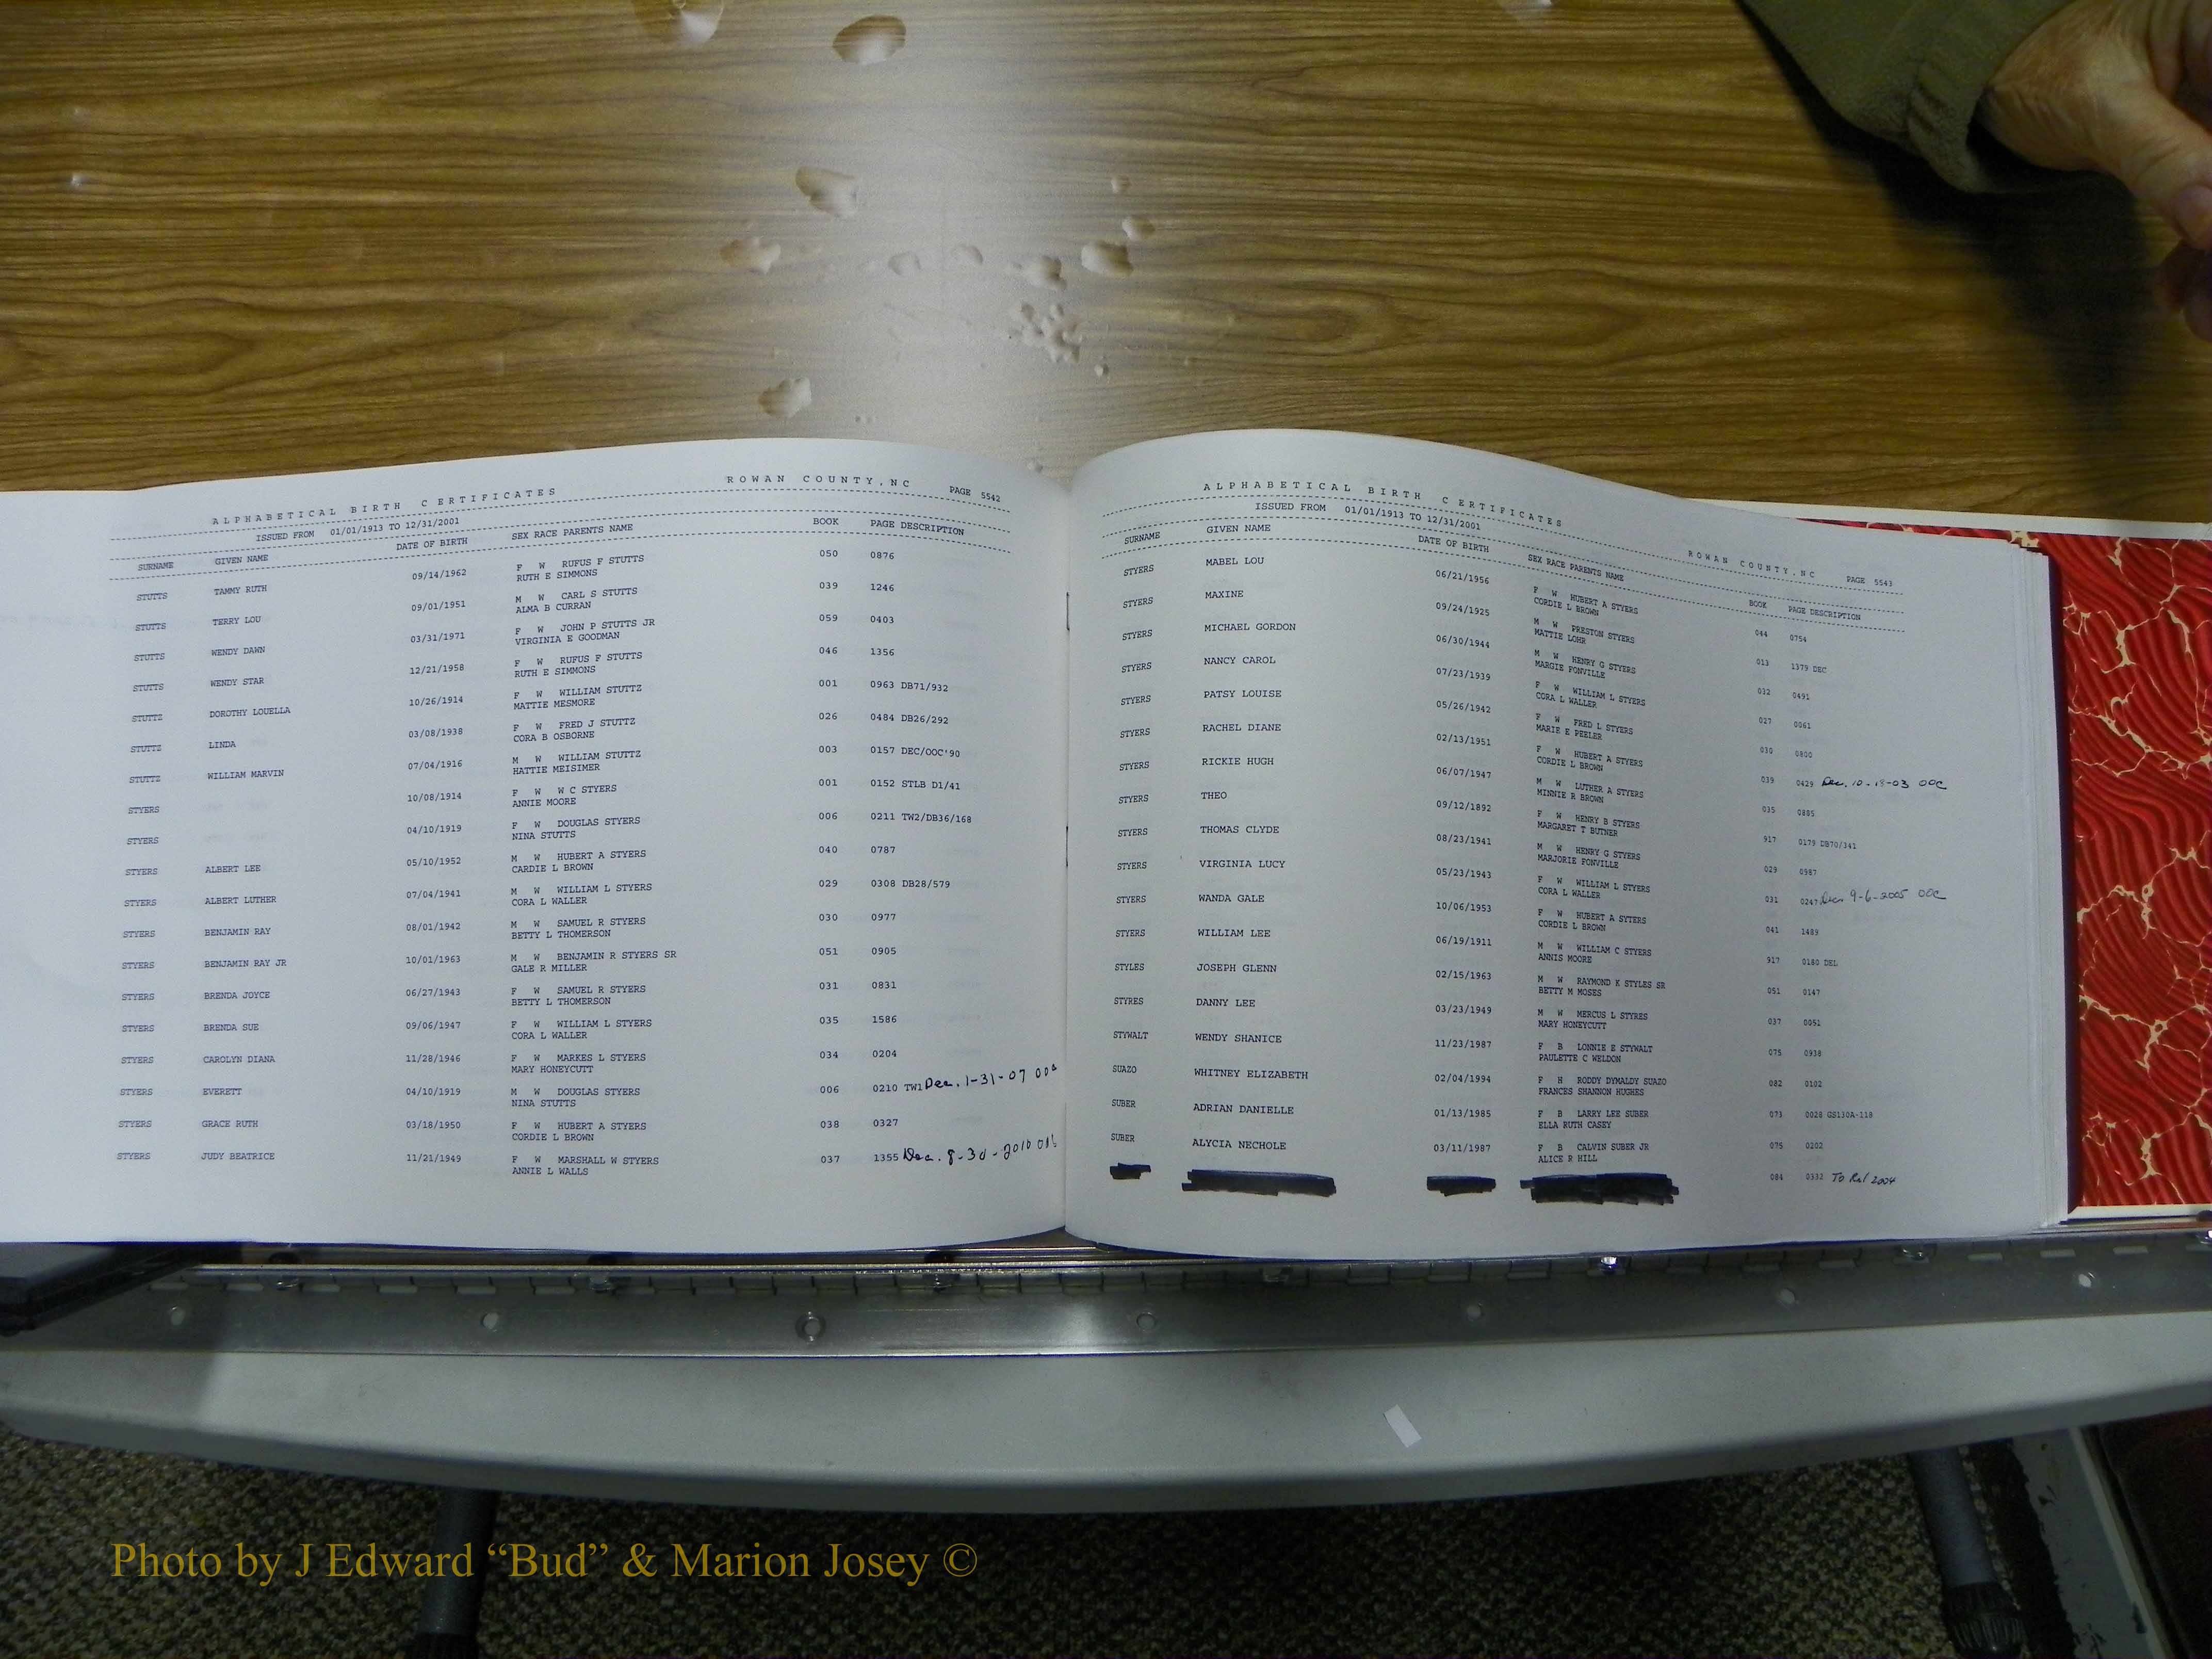 ALPHABETICAL BIRTH CERTIFICATES ROWAN COUNTY,NC PAGE 5542
ISSUED FROM 01/01/1913 TO 12/31/2001
SURNAME GIVEN NAME DATE OF BIRTH SEX RACE PARENTS NAME BOOK PAGE DESCRIPTION
STUTTS TAMMY RUTH 09/14/1962 F W RUFUS F STUTTS 050 0876
RUTH E SIMMONS
STUTTS TERRY LOU 09/01/1951 M W CARL S STUTTS 039 1246
ALMA B CURRAN
STUTTS WENDY DAWN 03/31/1971 F W JOHN P STUTTS JR 059 0403
VIRGINIA E GOODMAN
STUTTS WENDY STAR 12/21/1958 F W RUFUS F STUTTS 046 1356
RUTH E SIMMONS
STUTTZ DOROTHY LOUELLA 10/26/1914 F W WILLIAM STUTTZ 001 0963 DB71/932
MATTIE MESMORE
STUTTZ LINDA 03/08/1938 F W FRED J STUTTZ 026 0484 DB26/292
CORA B OSBORNE
STUTTZ WILLIAM MARVIN 07/04/1916 M W WILLIAM STUTTZ 003 0157 DEC/OOC'90
HATTIE MEISIMER
STYERS 10/08/1914 F W W C STYERS 001 0152 STLB D1/41
ANNIE MOORE
STYERS 04/10/1919 F W DOUGLAS STYERS 006 0211 TW2/DB36/168
NINA STUTTS
STYERS ALBERT LEE 05/10/1952 M W HUBERT A STYERS 040 0787
CARDIE L BROWN
STYERS ALBERT LUTHER 07/04/1941 M W WILLIAM L STYERS 029 0308 DB28/579
CORA L WALLER
STYERS BENJAMIN RAY 08/01/1942 M W SAMUEL R STYERS 030 0977
BETTY L THOMERSON
STYERS BENJAMIN RAY JR 10/01/1963 M W BENJAMIN R STYERS SR 051 0905
GALE R MILLER
STYERS BRENDA JOYCE 06/27/1943 F W SAMUEL R STYERS 031 0831
BETTY L THOMERSON
STYERS BRENDA SUE 09/06/1947 F W WILLIAM L STYERS 035 1586
CORA L WALLER
STYERS CAROLYN DIANA 11/28/1946 F W MARKES L STYERS 034 0204
MARY HONEYCUTT
STYERS EVERETT 04/10/1919 M W DOUGLAS STYERS 006 0210 TW1 Dec. 1-31-07
NINA STUTTS
STYERS GRACE RUTH 03/18/1950 F W HUBERT A STYERS 038 0327
CORDIE L BROWN
STYERS JUDY BEATRICE 11/21/1949 F W MARSHALL W STYERS 037 1355 Dec. 8-30-2010
ANNIE L WALLS
ALPHABETICAL BIRTH CERTIFICATES ROWAN COUNTY,NC PAGE 5543
ISSUED FROM 01/01/1913 TO 12/31/2001
SURNAME GIVEN NAME DATE OF BIRTH SEX RACE PARENTS NAME BOOK PAGE DESCRIPTION
STYERS MABEL LOU 06/21/1956 F W HUBERT A STYERS 044 0754
CORDIE L BROWN
STYERS MAXINE 09/24/1925 M W PRESTON STYERS 013 1379 DEC
MATTIE LOHR
STYERS MICHAEL GORDON 06/30/1944 M W HENRY G STYERS 032 0491
MARGIE FONVILLE
STYERS NANCY CAROL 07/23/1939 F W WILLIAM L STYERS 027 0061
CORA L WALLER
STYERS PATSY LOUISE 05/26/1942 F W FRED L STYERS 030 0800
MARIE E PEELER
STYERS RACHEL DIANE 02/13/1951 F W HUBERT A STYERS 039 0429 Dec. 10-18-03 OOC
CORDIE L BROWN
STYERS RICKIE HUGH 06/07/1947 M W LUTHER A STYERS 035 0885
MINNIE R BROWN
STYERS THEO 09/12/1892 F W HENRY B STYERS 917 0179 DB70/341
MARGARET T BUTNER
STYERS THOMAS CLYDE 08/23/1941 M W HENRY G STYERS 029 0987
MARJORIE FONVILLE
STYERS VIRGINIA LUCY 05/23/1943 F W WILLIAM L STYERS 031 0247 Dec. 9-6-2005 OOC
CORA L WALLER
STYERS WANDA GALE 10/06/1953 F W HUBERT A SYTERS 041 1489
CORDIE L BROWN
STYERS WILLIAM LEE 06/19/1911 M W WILLIAM C STYERS 917 0180 DEL
ANNIS MOORE
STYLES JOSEPH GLENN 02/15/1963 M W RAYMOND K STYLES SR 051 0147
BETTY M MOSES
STYRES DANNY LEE 03/23/1949 M W MERCUS L STYRES 037 0051
MARY HONEYCUTT
STYWALT WENDY SHANICE 11/23/1987 F B LONNIE E STYWALT 075 0938
PAULETTE C WELDON
SUAZO WHITNEY ELIZABETH 02/04/1994 F H RODDY DYMALDY SUAZO 082 0102
FRANCES SHANNON HUGHES
SUBER ADRIAN DANIELLE 01/13/1985 F B LARRY LEE SUBER 073 0028 GS130A-118
ELLA RUTH CASEY
SUBER ALYCIA NECHOLE 03/11/1987 F B CALVIN SUBER JR 075 0202
ALICE R HILL
084 0332 To Ral 2004
Photo by J Edward “Bud” & Marion Josey ©